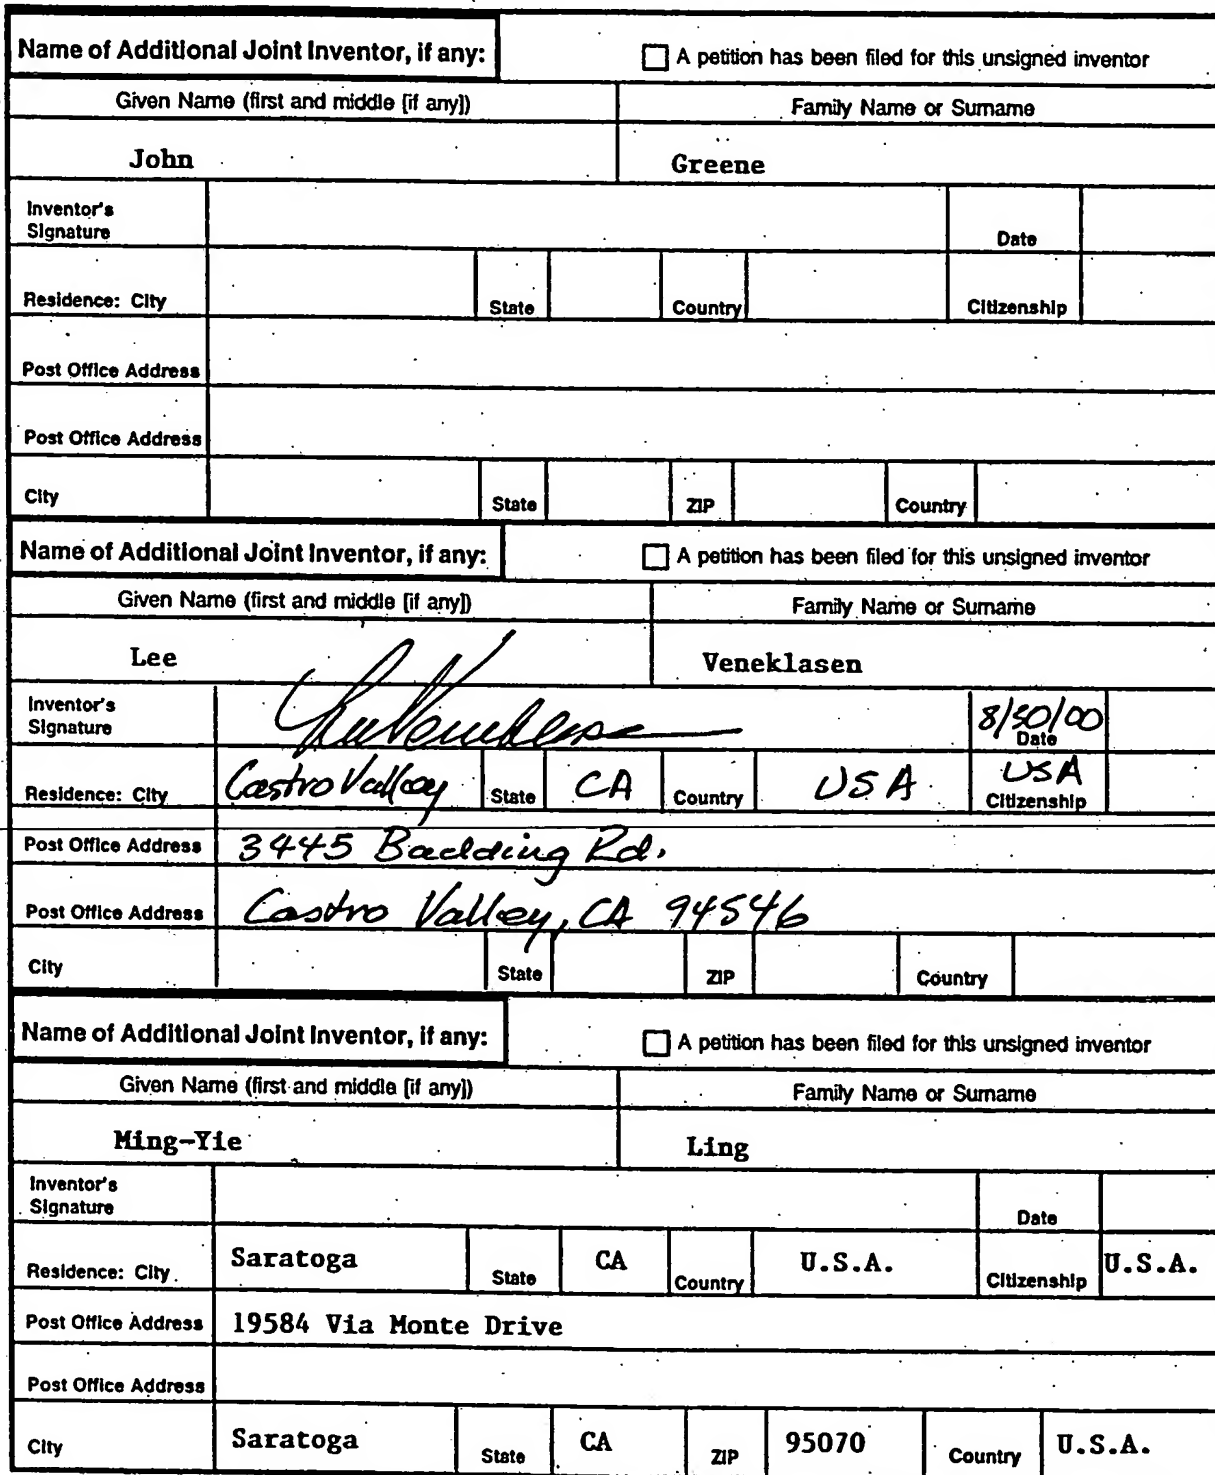 Name of Additional Joint Inventor, if any: A petition has been filed for this unsigned inventor
Given Name (first and middle [if any]) Family Name or Surname
John Greene
Inventor's
Signature Date
Residence: City State Country Citizenship
Post Office Address
Post Office Address
City State ZIP Country
Name of Additional Joint Inventor, if any: A petition has been filed for this unsigned inventor
Given Name (first and middle [if any]) Family Name or Surname
Lee Veneklasen
Inventor's
Signature 8/30/00 Date
Residence: City Castro Valley State CA Country USA USA Citizenship
Post Office Address 3445 Badding Rd.
Post Office Address Castro Valley, CA 94546
City State ZIP Country
Name of Additional Joint Inventor, if any: A petition has been filed for this unsigned inventor
Given Name (first and middle [if any]) Family Name or Surname
Ming-Yie Ling
Inventor's
Signature Date
Residence: City Saratoga State CA Country U.S.A. Citizenship U.S.A.
Post Office Address 19584 Via Monte Drive
Post Office Address
City Saratoga State CA ZIP 95070 Country U.S.A.